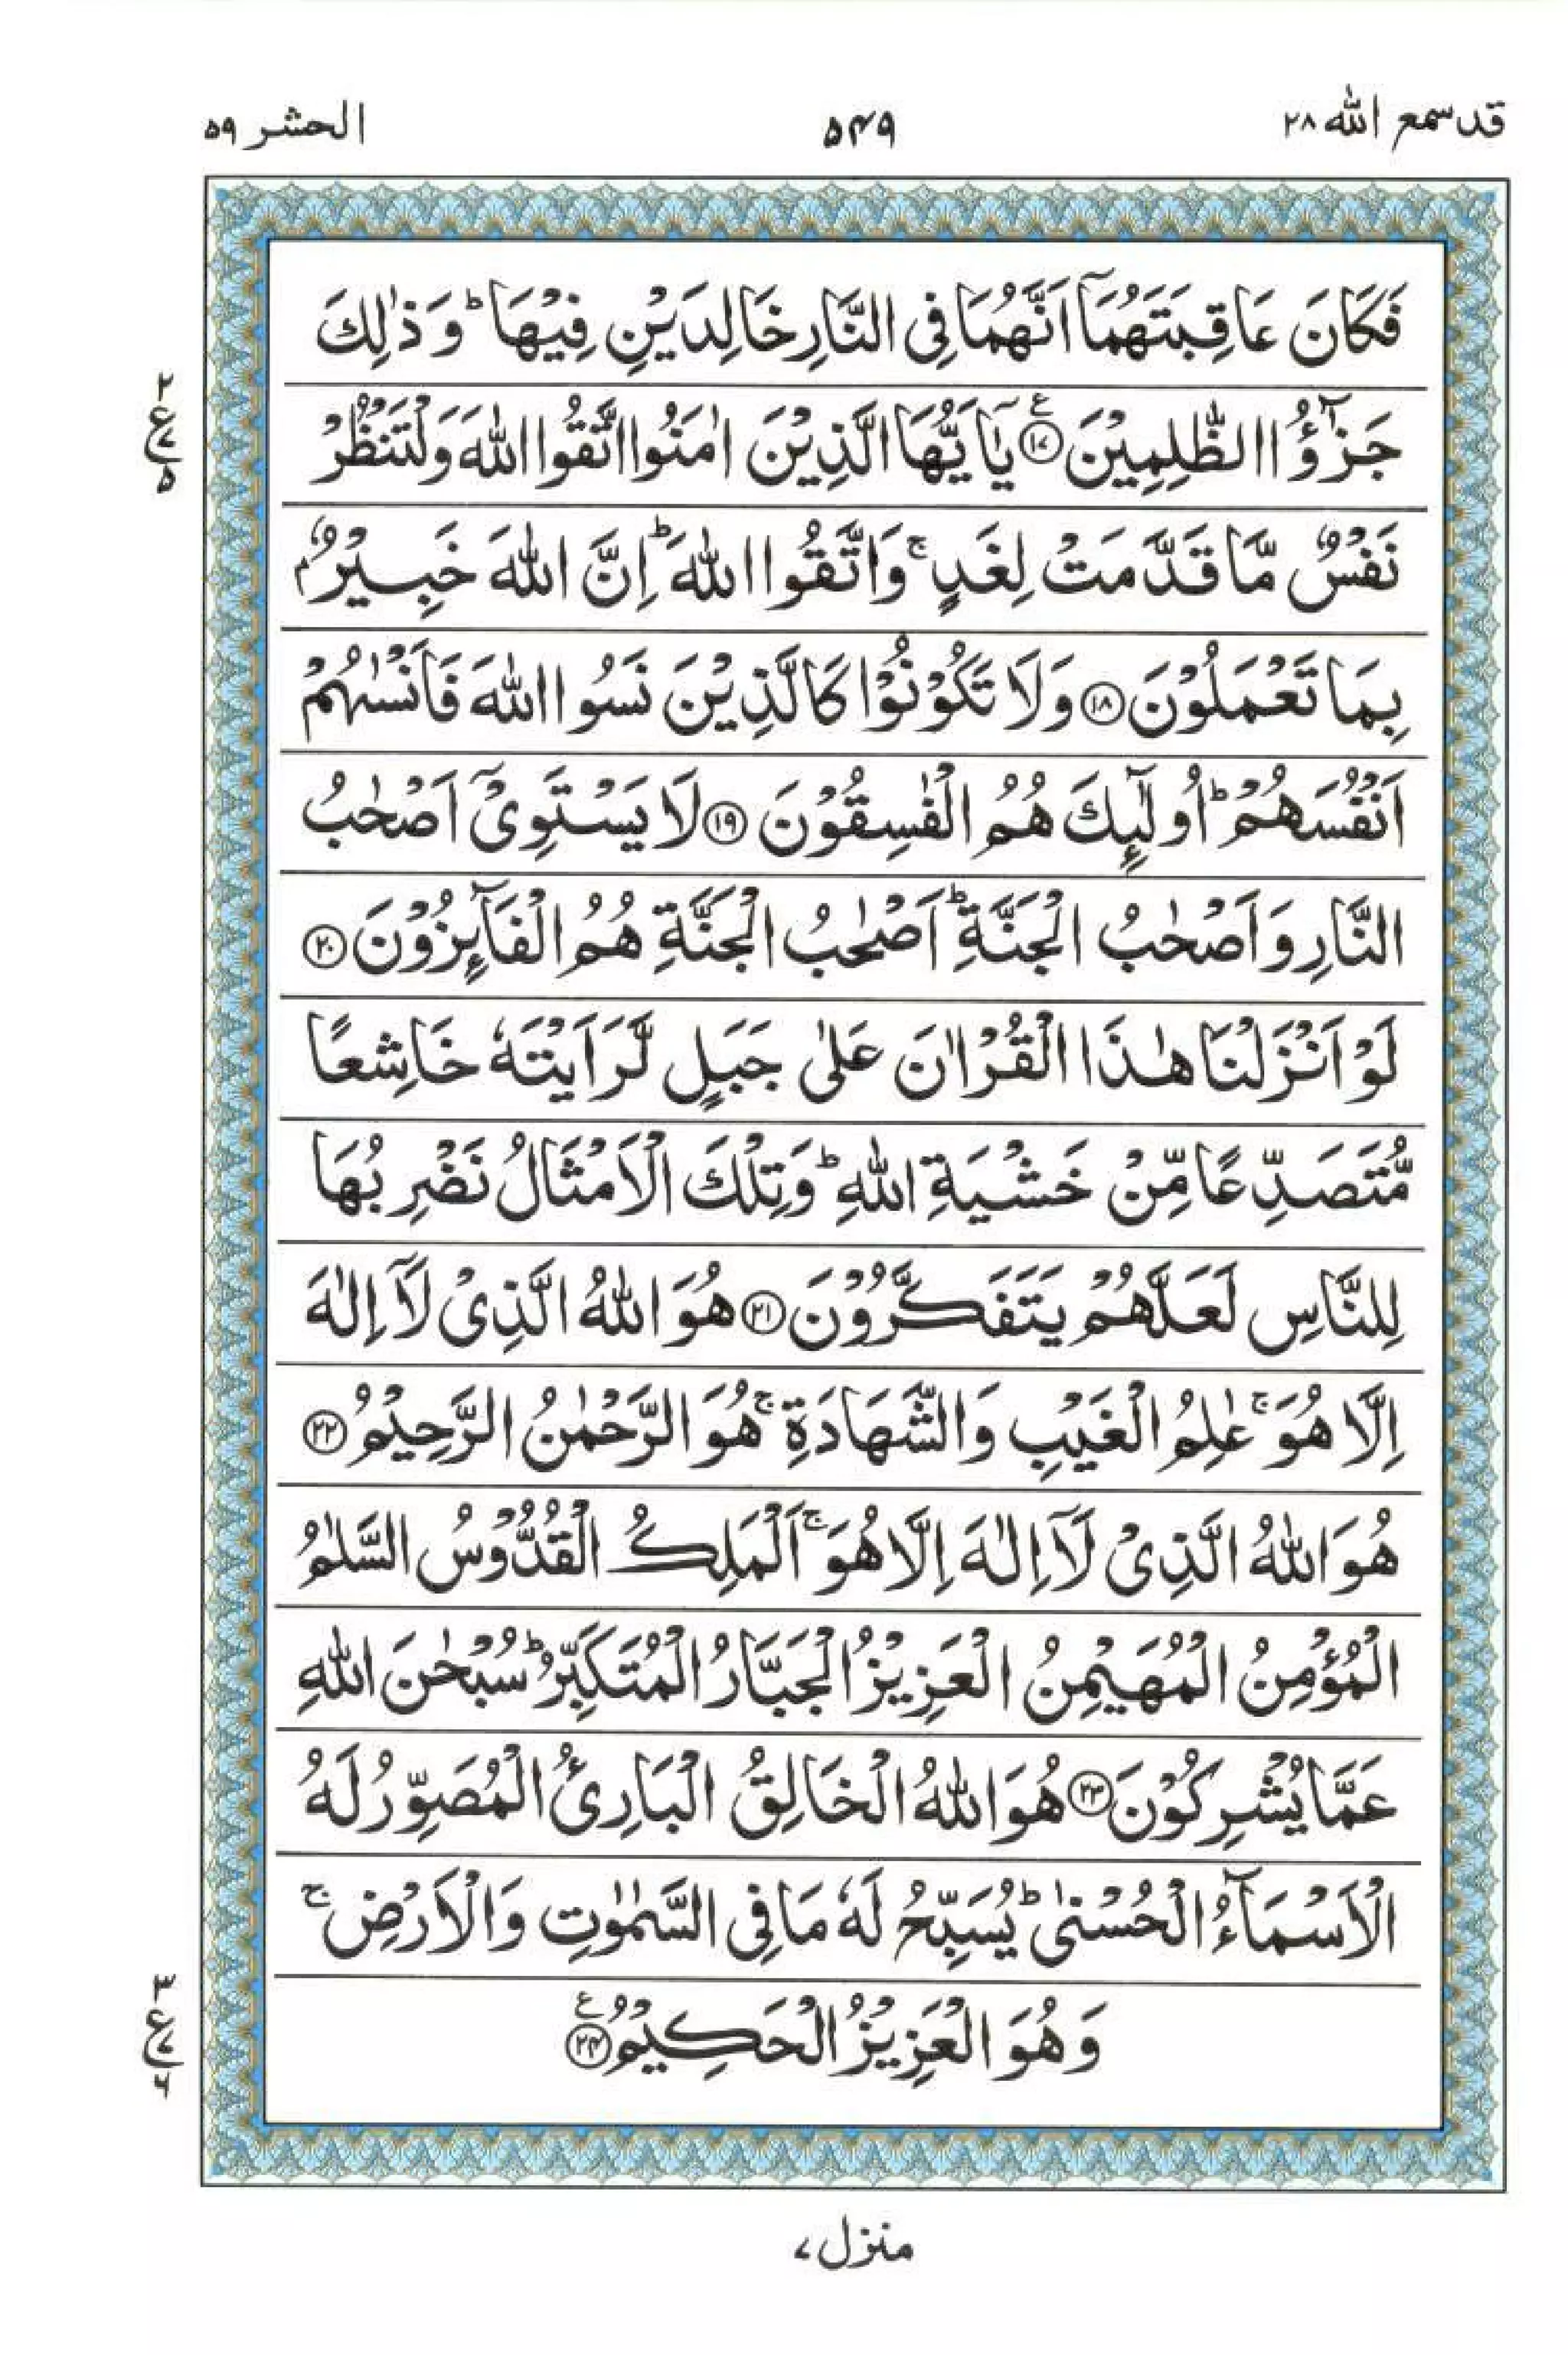 قد سمع الله ٢٨
۵۴۹
الحشر ۵۹
فَكَانَ عَاقِبَتَهُمَاۤ اَنَّهُمَا فِى النَّارِ خَالِدَيْنِ فِيْهَا ؕ وَ ذٰلِكَ
جَزٰٓؤُا الظّٰلِمِيْنَ ۧ‏﴿۱۷﴾ يٰۤاَيُّهَا الَّذِيْنَ اٰمَنُوا اتَّقُوا اللّٰهَ وَلْتَنْظُرْ
نَفْسٌ مَّا قَدَّمَتْ لِغَدٍ ۚ وَاتَّقُوا اللّٰهَ ؕ اِنَّ اللّٰهَ خَبِيْرٌۢ
بِمَا تَعْمَلُوْنَ ﴿۱۸﴾ وَلَا تَكُوْنُوْا كَالَّذِيْنَ نَسُوا اللّٰهَ فَاَنْسٰٮهُمْ
اَنْفُسَهُمْ ؕ اُولٰٓئِكَ هُمُ الْفٰسِقُوْنَ ﴿۱۹﴾ لَا يَسْتَوِىْۤ اَصْحٰبُ
النَّارِ وَ اَصْحٰبُ الْجَنَّةِ ؕ اَصْحٰبُ الْجَنَّةِ هُمُ الْفَآئِزُوْنَ ﴿۲۰﴾
لَوْ اَنْزَلْنَا هٰذَا الْقُرْاٰنَ عَلٰى جَبَلٍ لَّرَاَيْتَهٗ خَاشِعًا
مُّتَصَدِّعًا مِّنْ خَشْيَةِ اللّٰهِ ؕ وَتِلْكَ الْاَمْثَالُ نَضْرِبُهَا
لِلنَّاسِ لَعَلَّهُمْ يَتَفَكَّرُوْنَ ﴿۲۱﴾ هُوَ اللّٰهُ الَّذِىْ لَاۤ اِلٰهَ
اِلَّا هُوَ ۚ عٰلِمُ الْغَيْبِ وَالشَّهَادَةِ ۚ هُوَ الرَّحْمٰنُ الرَّحِيْمُ ﴿۲۲﴾
هُوَ اللّٰهُ الَّذِىْ لَاۤ اِلٰهَ اِلَّا هُوَ ۚ اَلْمَلِكُ الْقُدُّوْسُ السَّلٰمُ
الْمُؤْمِنُ الْمُهَيْمِنُ الْعَزِيْزُ الْجَبَّارُ الْمُتَكَبِّرُ ؕ سُبْحٰنَ اللّٰهِ
عَمَّا يُشْرِكُوْنَ ﴿۲۳﴾ هُوَ اللّٰهُ الْخَالِقُ الْبَارِئُ الْمُصَوِّرُ لَهُ
الْاَسْمَآءُ الْحُسْنٰى ؕ يُسَبِّحُ لَهٗ مَا فِى السَّمٰوٰتِ وَالْاَرْضِ ۚ
وَهُوَ الْعَزِيْزُ الْحَكِيْمُ ﴿۲۴﴾ ع
٢
ع
٧
۵
٣
ع
٧
۶
منزل ٧